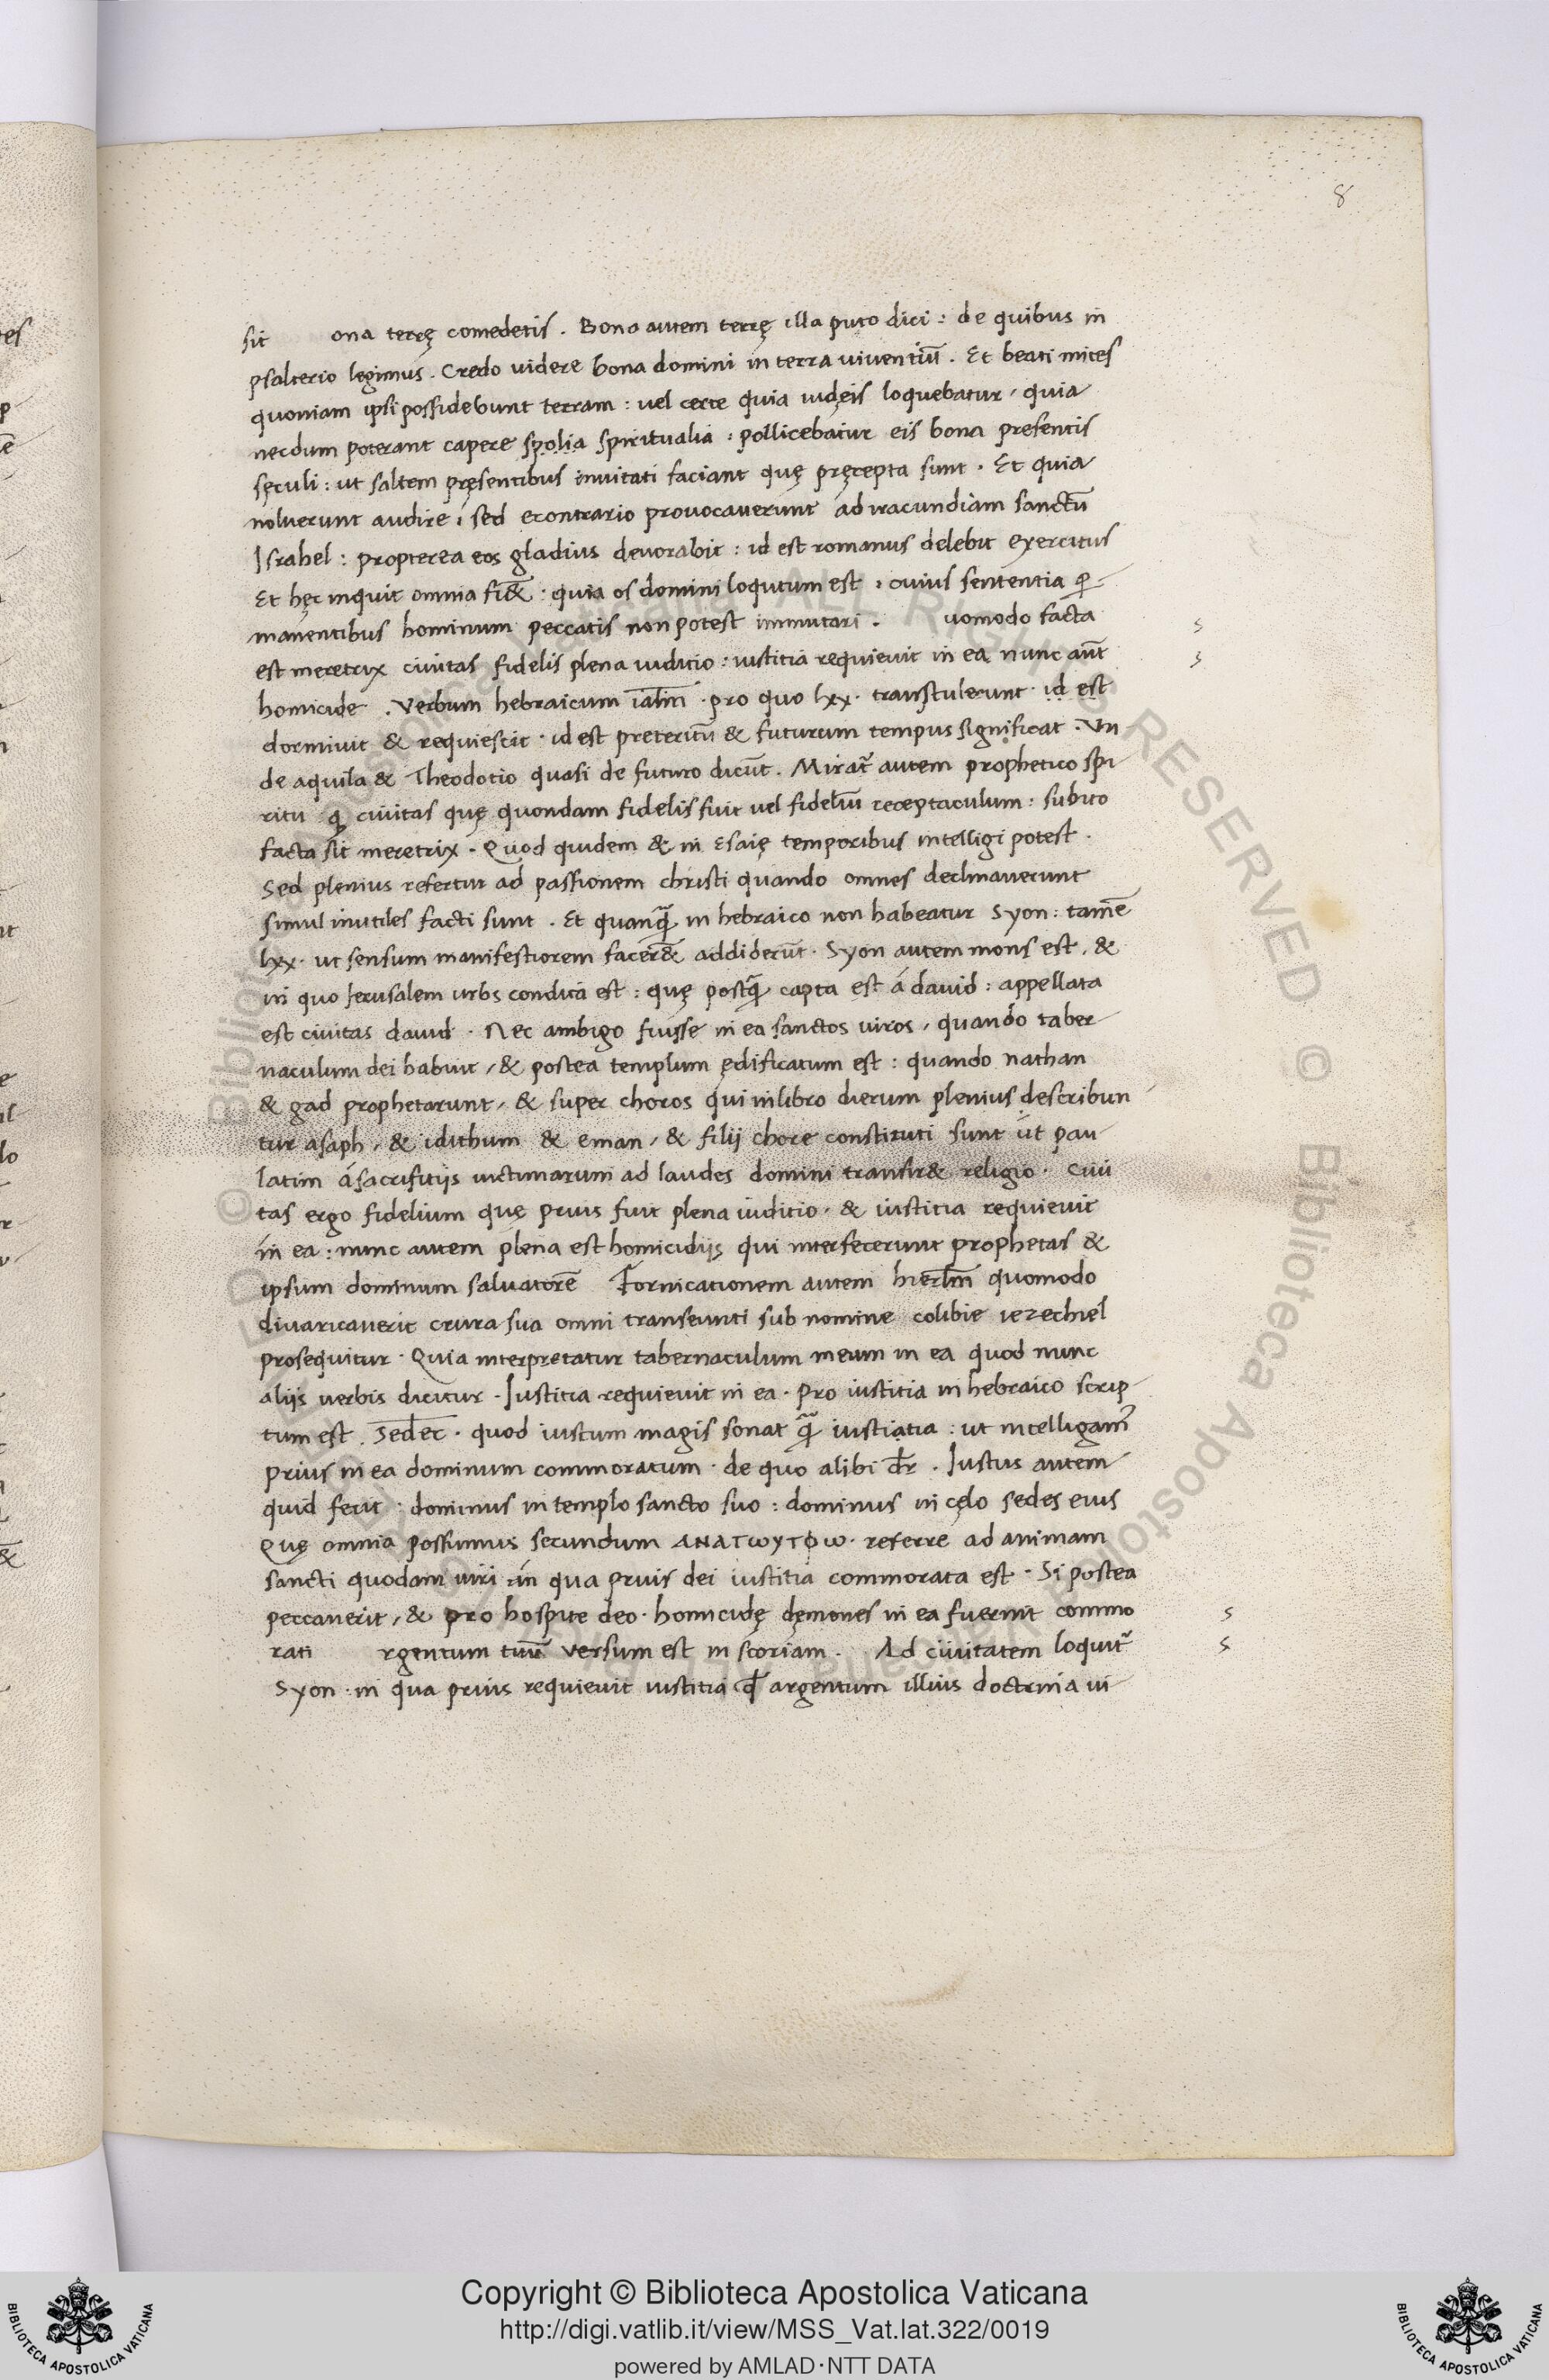 8
sit ona terrę comedetis . Bona autem terrę illa puto dici : de quibus in
psalterio legimus . Credo uidere bona domini in terra uiuentiū . Et beati mites
quoniam ipsi possidebunt terram : uel certe quia iudęis loquebatur , quia
necdum poterant capere spolia spiritualia : pollicebatur eis bona presentis
sęculi : ut saltem pręsentibus inuitati faciant quę pręcepta sunt . Et quia
noluerunt audire ; sed econtrario prouocauerunt ád iracundiam sanctū
Israhel : propterea eos gladius deuorabit : id est romanus delebit exercitus
Et hęc inquit omnia fi&̄ : quia os domini loqutum est , cuius sententia ꝑ-
manentibus hominum peccatis non potest immutari . uomodo facta
est meretrix ciuitas fidelis plena iuditio : iustitia requieuit in ea nunc aūt
homicide . Verbum hebraicum ialīn · pro quo lxx · transtulerunt · id est
dormiuit & requiescit · id est preteritū & futurum tempus significat . Vn
de aquila & Theodotio quasi de futuro dicūt . Mirat᷑ autem prophetico spi
ritu ꝙ ciuitas quę quondam fidelis fuit uel fideliū receptaculum : subito
facta sit meretrix . Quod quidem & in Esaię temporibus intelligi potest .
Sed plenius refertur ad passionem christi quando omnes declinauerunt
simul inutiles facti sunt . Et quanq̄ in hebraico non habeatur Syon : tamē
lxx · ut sensum manifestiorem facer&̄ addiderūt · Syon autem mons est , &
in quo Jerusalem urbs condita est : quę postq̄ capta est á dauid : appellata
est ciuitas dauid . Nec ambigo fuisse in ea sanctos uiros , quando taber
naculum dei habuit , & postea templum ędificatum est : quando nathan
& gad prophetarunt , & super choros qui in libro dierum plenius describun
tur asaph , & idithum & eman , & filij chore constituti sunt ut pau
latim á sacrifitijs uictimarum ad laudes domini transir& religio · Ciui
tas ergo fidelium quę prius fuit plena iuditio · & iustitia requieuit
in ea : nunc autem plena est homicidijs qui interfecerunt prophetas &
ipsum dominum saluatorē Fornicationem autem hierl̄m quomodo
diuaricauerit crura sua omni transeunti sub nomine colibie iezechiel
prosequitur · Quia interpretatur tabernaculum meum in ea quod nunc
alijs uerbis dicitur . Iustitia requieuit in ea . Pro iustitia in hebraico scrip
tum est . Sedec · quod iustum magis sonat q̄ iustiatia : ut intelligam᷑
prius in ea dominum commoratum · de quo alibi dr̄ . Iustus autem
quid fecit : dominus in templo sancto suo : dominus in cęlo sedes eius
Quę omnia possumus secundum ΑΝΑΤωΥΤΦω · referre ad animam
sancti quodam uiri in qua prius dei iustitia commorata est · Si postea
peccauerit , & pro hospite deo · homicidę dęmones in ea fuerint commo
rati rgentum tuū versum est in scoriam . Ad ciuitatem loquit᷑
Syon : in qua prius requieuit iustitia ꝙ argentum illius doctrina ui
s
s
s
s
Copyright © Biblioteca Apostolica Vaticana
http://digi.vatlib.it/view/MSS_Vat.lat.322/0019
powered by AMLAD·NTT DATA
BIBLIOTECA APOSTOLICA VATICANA
BIBLIOTECA APOSTOLICA VATICANA